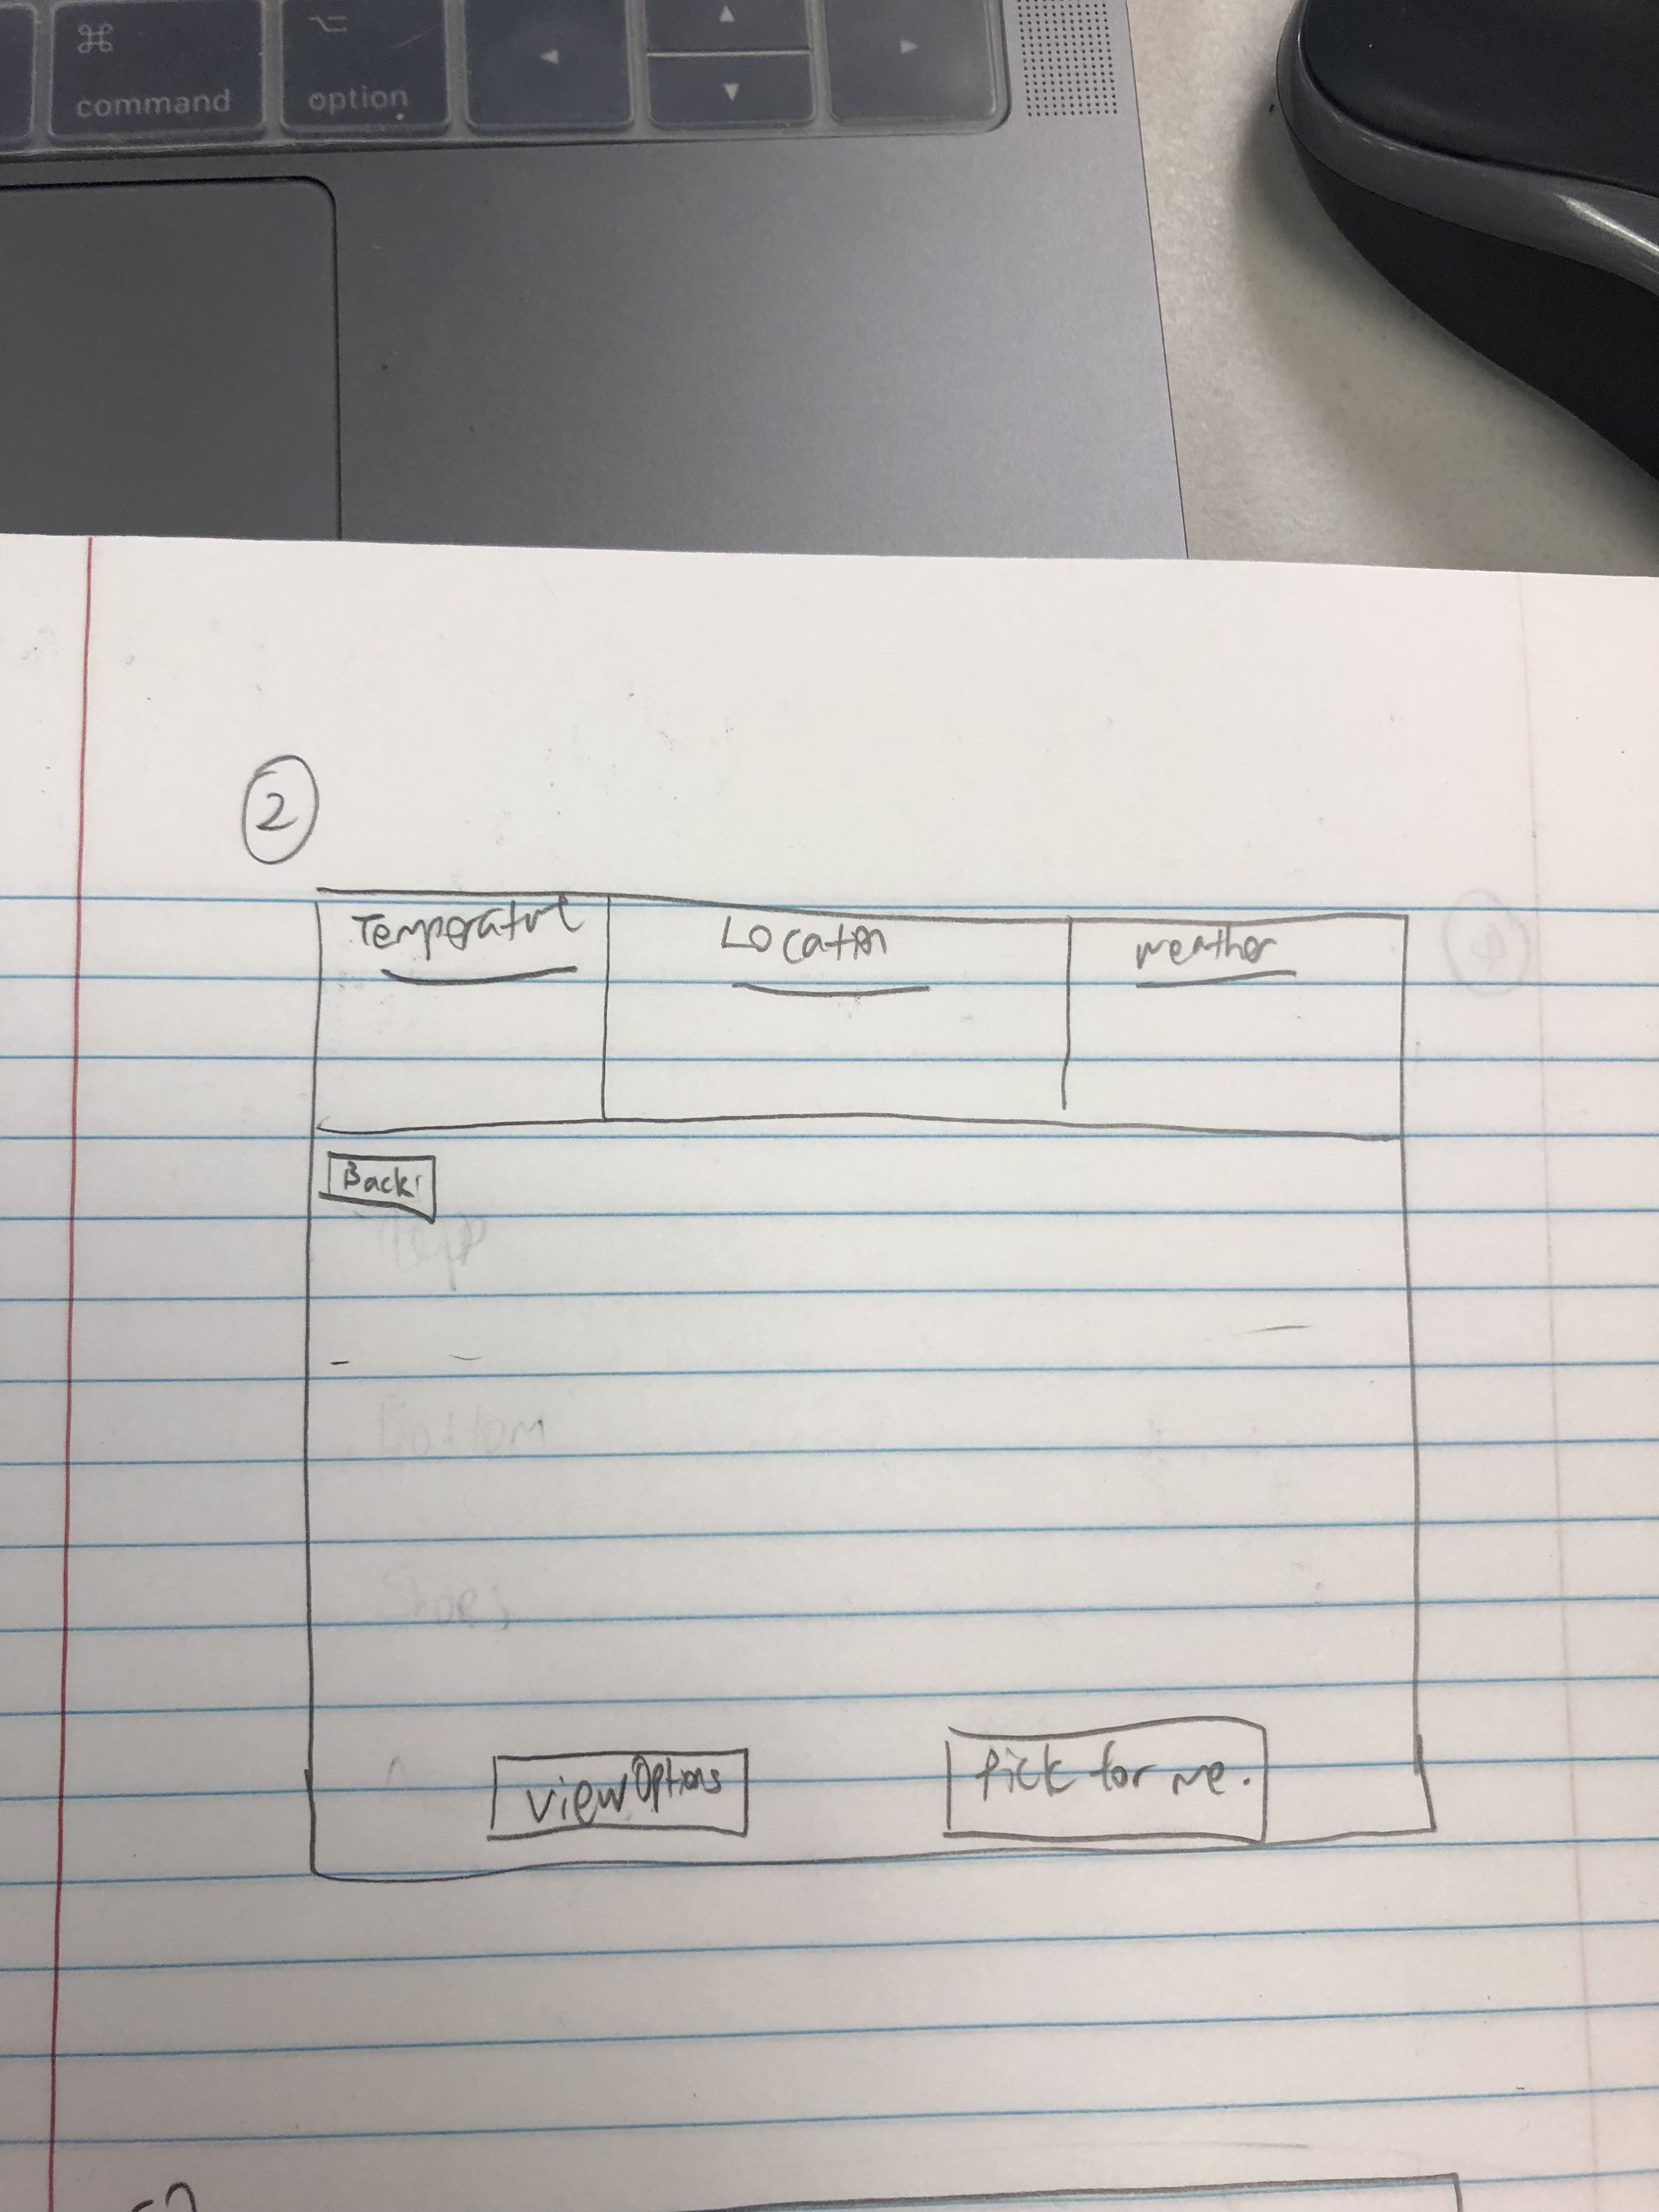 command
option
2
Temperature
Location
weather
Back
view Options
Pick for me.